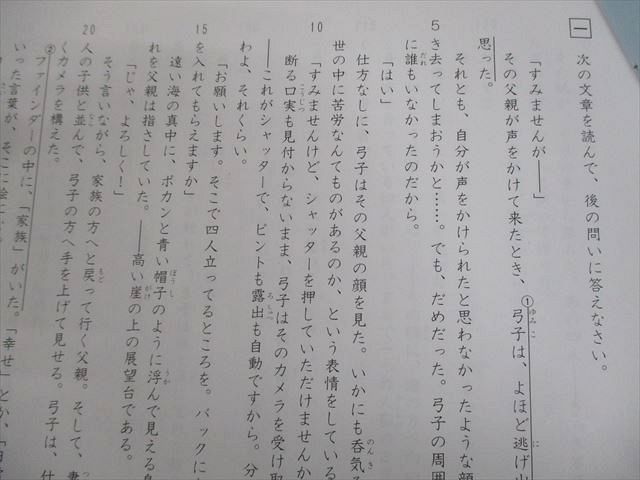 一
次の文章を読んで、後の問いに答えなさい。
「すみませんが――」
その父親が声をかけて来たとき、①弓子は、よほど逃げ出
思った。
それとも、自分が声をかけられたと思わなかったような顔
5 さ去ってしまおうかと……。でも、だめだった。弓子の周囲
に誰もいなかったのだから。
「はい」
仕方なしに、弓子はその父親の顔を見た。いかにも呑気
世の中に苦労なんてものがあるのか、という表情をしている
10 「すみませんけど、シャッターを押していただけませんか
断る口実も見付からないまま、弓子はそのカメラを受け取
――これがシャッターで、ピントも露出も自動ですから。分
わよ、それくらい。
「お願いします。そこで四人立ってるところを。バックに
15 を入れてもらえますか」
遠い海の真中に、ポカンと青い帽子のように浮んで見える
れを父親は指さしていた。――高い崖の上の展望台である。
「じゃ、よろしく！」
そう言いながら、家族の方へと戻って行く父親。そして、妻
20 人の子供と並んで、弓子の方へ手を上げて見せる。弓子は、仕
くカメラを構えた。
②ファインダーの中に、「家族」がいた。「幸せ」とか、
いった言葉が、そこに